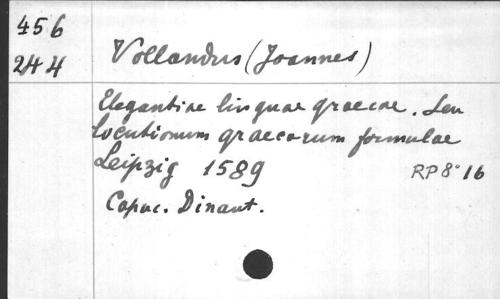 456
244
Vollandus (Joannes)
Elegantiae linguae graecae. Seu
locutionum graecarum formulae
Leipzig 1589
RP 8° 16
Capuc. Dinant.